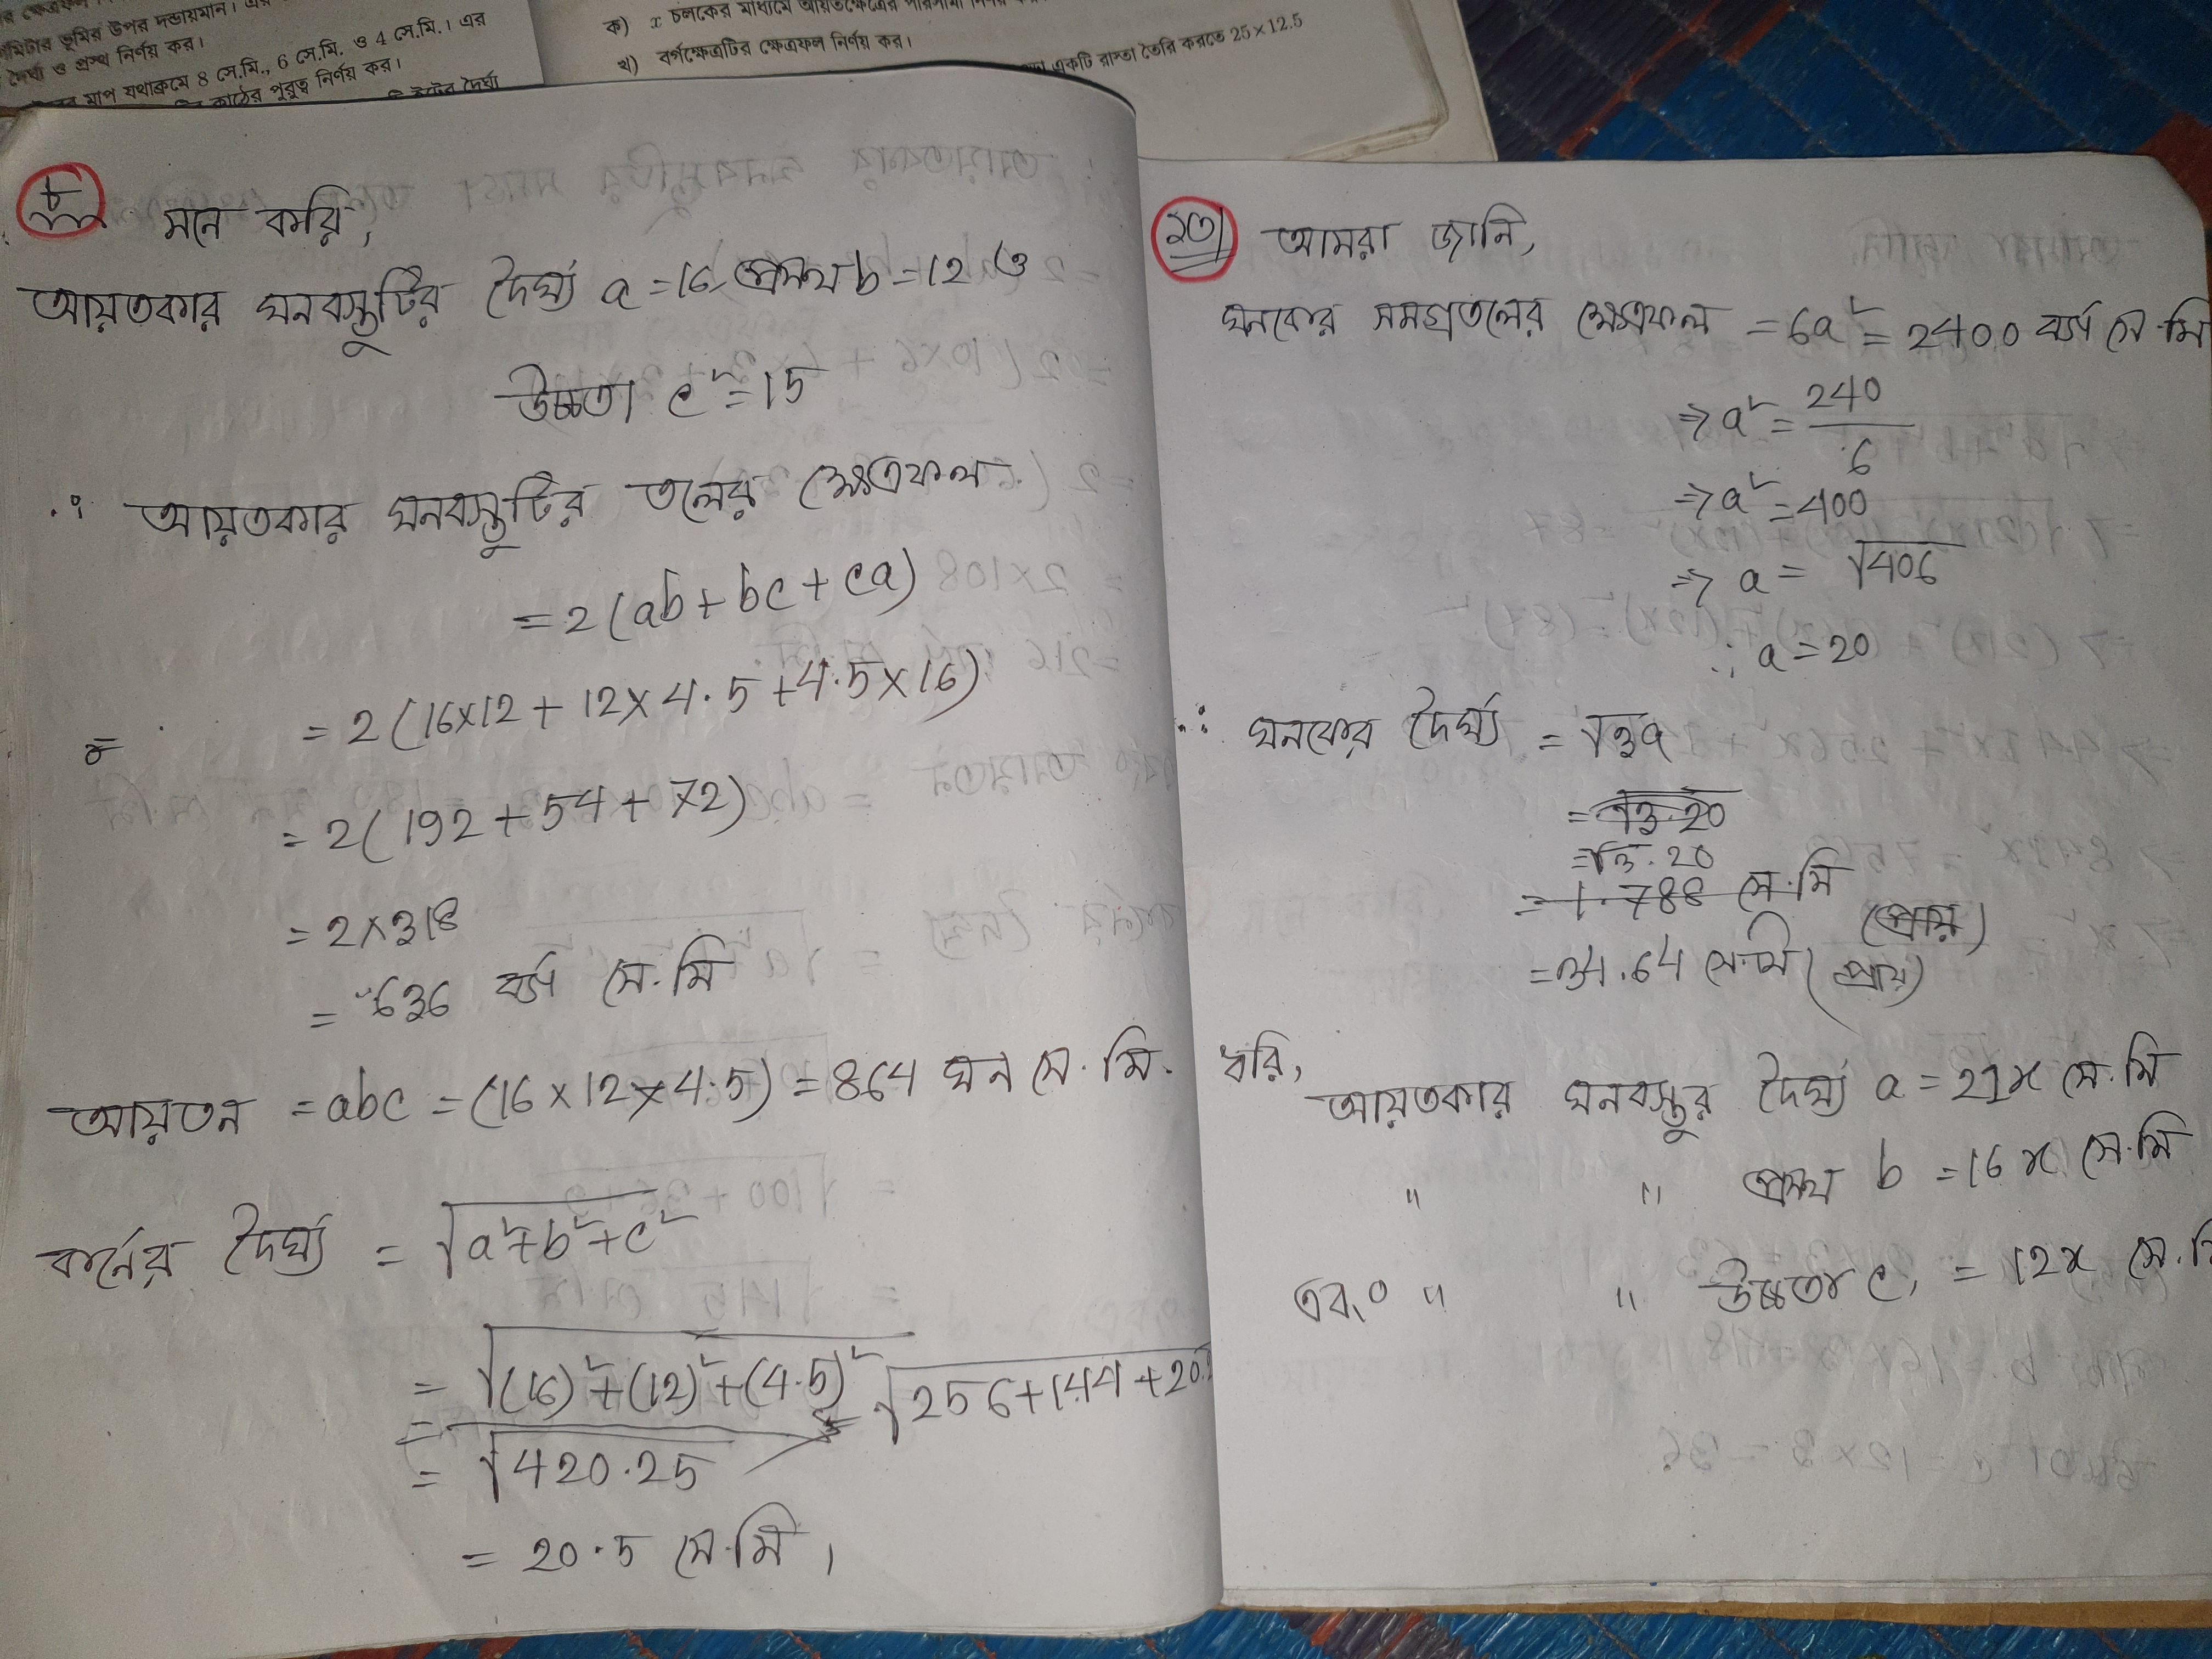 মিটার ভূমির উপর দন্ডায়মান। এর
দৈর্ঘ্য ও প্রস্থ নির্ণয় কর।
মাপ যথাক্রমে 8 সে.মি., 6 সে.মি. ও 4 সে.মি.। এর
কাঠের পুরুত্ব নির্ণয় কর।
ক) x চলকের মাধ্যমে আয়তক্ষেত্রের পরিসীমা নির্ণয়
খ) বর্গক্ষেত্রটির ক্ষেত্রফল নির্ণয় কর।
একটি রাস্তা তৈরি করতে 25×12.5
৮ মনে করি,
আয়তকার ঘনবস্তুটির দৈর্ঘ্য a = 16, প্রস্থ b = 12 ও
উচ্চতা c² = 15
∴ আয়তকার ঘনবস্তুটির তলের ক্ষেত্রফল
= 2 (ab + bc + ca)
= 2 (16×12 + 12×4.5 + 4.5×16)
= 2 (192 + 54 + 72)
= 2×318
= 636 বর্গ সে.মি
আয়তন = abc = (16×12×4.5) = 864 ঘন সে.মি.
কর্নের দৈর্ঘ্য = √a²+b²+c²
= √(16)²+(12)²+(4.5)² = √256+144+20.
= √420.25
= 20.5 সে.মি,
১৩। আমরা জানি,
ঘনকের সমগ্রতলের ক্ষেত্রফল = 6a² = 2400 বর্গ সে.মি
⇒ a² = 240/6
⇒ a² = 400
⇒ a = √400
∴ a = 20
∴ ঘনকের দৈর্ঘ্য = √3a
= √3.20
= √3.20
= 1.788 সে.মি (প্রায়)
= 34.64 সে.মি (প্রায়)
ধরি,
আয়তকার ঘনবস্তুর দৈর্ঘ্য a = 21x সে.মি
" " প্রস্থ b = 16x সে.মি
এবং " " উচ্চতা c, = 12x সে.মি